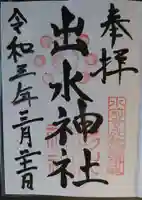 奉拝
出水神社
令和三年三月二十一日